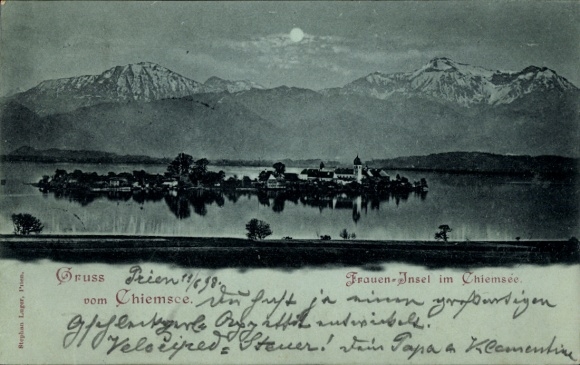 Gruss
vom Chiemsee.
Frauen-Insel im Chiemsee.
Stephan Luger, Prien.
Prien 19/6 98.
Du hast ja einen großartigen
entwickelt.
Velociped-Steuer! Dein Papa u Klementine